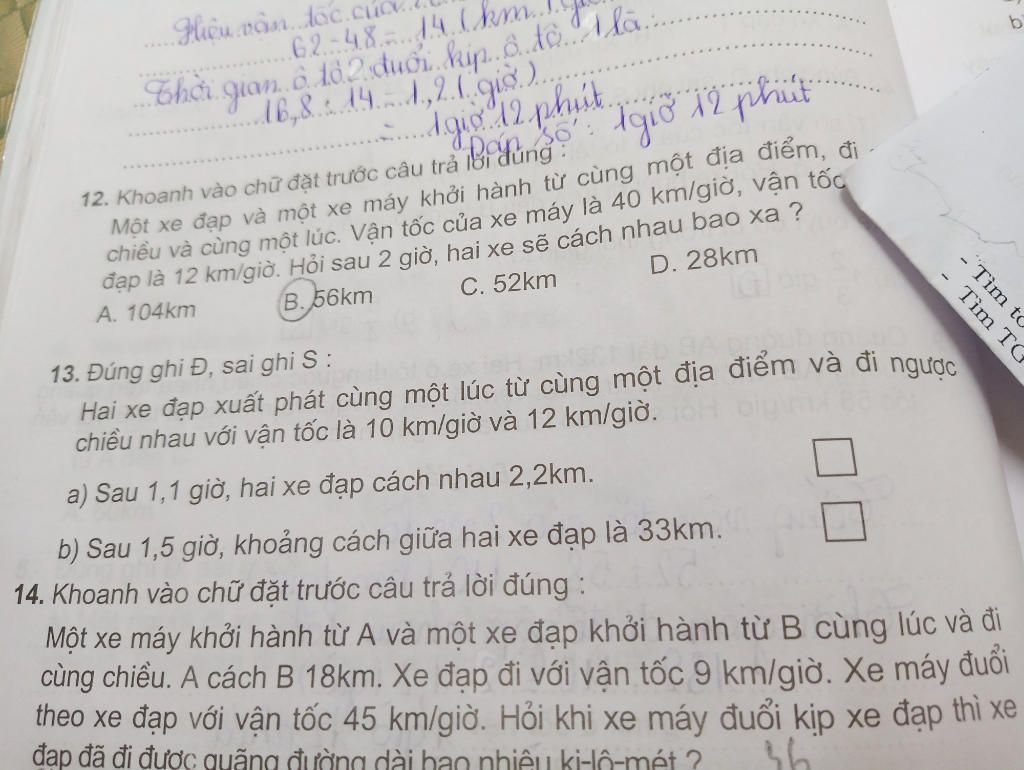 Hiệu vận tốc của
62 - 48 = 14 (km
Thời gian ô tô 2 đuổi kịp ô tô 1 là:
16,8 : 14 = 1,2 (giờ)
= 1 giờ 12 phút
Đáp số: 1 giờ 12 phút
12. Khoanh vào chữ đặt trước câu trả lời đúng :
Một xe đạp và một xe máy khởi hành từ cùng một địa điểm, đi
chiều và cùng một lúc. Vận tốc của xe máy là 40 km/giờ, vận tốc
đạp là 12 km/giờ. Hỏi sau 2 giờ, hai xe sẽ cách nhau bao xa ?
A. 104km B. 56km C. 52km D. 28km
13. Đúng ghi Đ, sai ghi S :
Hai xe đạp xuất phát cùng một lúc từ cùng một địa điểm và đi ngược
chiều nhau với vận tốc là 10 km/giờ và 12 km/giờ.
a) Sau 1,1 giờ, hai xe đạp cách nhau 2,2km.
b) Sau 1,5 giờ, khoảng cách giữa hai xe đạp là 33km.
14. Khoanh vào chữ đặt trước câu trả lời đúng :
Một xe máy khởi hành từ A và một xe đạp khởi hành từ B cùng lúc và đi
cùng chiều. A cách B 18km. Xe đạp đi với vận tốc 9 km/giờ. Xe máy đuổi
theo xe đạp với vận tốc 45 km/giờ. Hỏi khi xe máy đuổi kịp xe đạp thì xe
đạp đã đi được quãng đường dài bao nhiêu ki-lô-mét ?
- Tìm
- Tìm